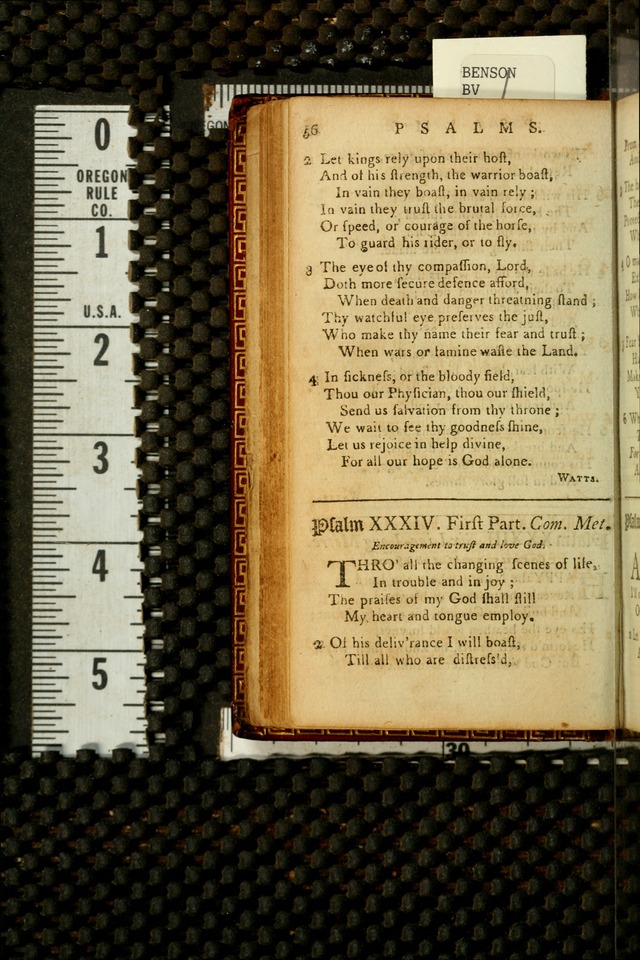 BENSON
BV
0
OREGON
RULE
CO.
1
U.S.A.
2
3
4
5
56 PSALMS.
2 Let kings rely upon their hoſt,
And of his ſtrength, the warrior boaſt,
In vain they boaſt, in vain rely ;
In vain they truſt the brutal force,
Or ſpeed, or courage of the horſe,
To guard his rider, or to fly.
3 The eye of thy compaſſion, Lord,
Doth more ſecure defence afford,
When death and danger threatning ſtand ;
Thy watchful eye preſerves the juſt,
Who make thy name their fear and truſt ;
When wars or famine waſte the Land.
4 In ſickneſs, or the bloody field,
Thou our Phyſician, thou our ſhield,
Send us ſalvation from thy throne ;
We wait to ſee thy goodneſs ſhine,
Let us rejoice in help divine,
For all our hope is God alone.
WATTS.
Pſalm XXXIV. Firſt Part. Com. Met.
Encouragement to truſt and love God.
THRO' all the changing ſcenes of life,
In trouble and in joy ;
The praiſes of my God ſhall ſtill
My heart and tongue employ.
2 Of his deliv'rance I will boaſt,
Till all who are diſtreſs'd,
30